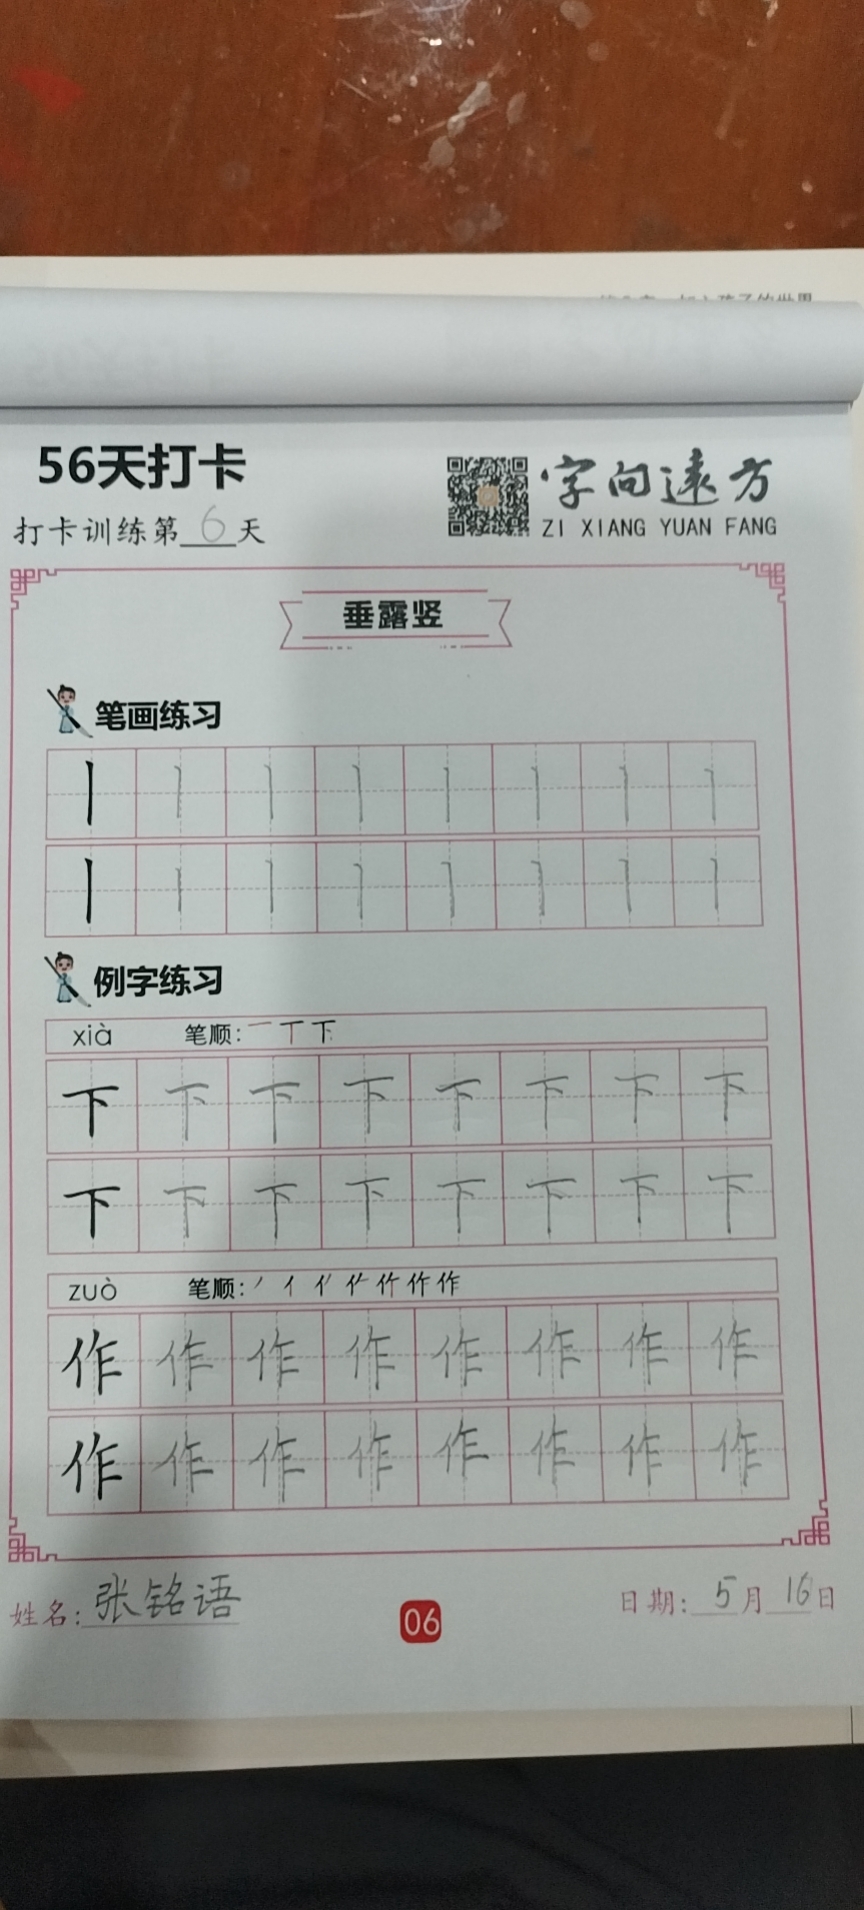 56天打卡
字向远方
打卡训练第6天
ZI XIANG YUAN FANG
垂露竖
笔画练习
丨 丨 丨 丨 丨 丨 丨 丨
丨 丨 丨 丨 丨 丨 丨 丨
例字练习
xià 笔顺: 一 丅 下
下 下 下 下 下 下 下 下
下 下 下 下 下 下 下 下
zuò 笔顺:
作 作 作 作 作 作 作 作
作 作 作 作 作 作 作 作
姓名:张铭语
06
日期:5月16日